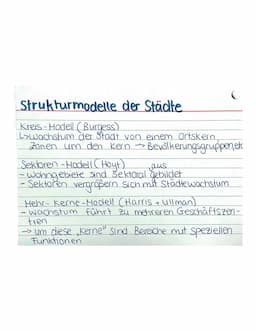 Strukturmodelle der Städte
Kreis-Modell (Burgess)
↳ Wachstum der Stadt von einem Ortskern,
Zonen um den Kern → Bevölkerungsgruppen, etc
Sektoren-Modell (Hoyt) aus
- Wohngebiete sind sektoral gebildet
- Sektoren vergrößern sich mit Städtewachstum
Mehr-Kerne-Modell (Harris + Ullman)
- Wachstum führt zu mehreren Geschäftszen-
tren
→ um diese „Kerne" sind Bereiche mit speziellen
Funktionen